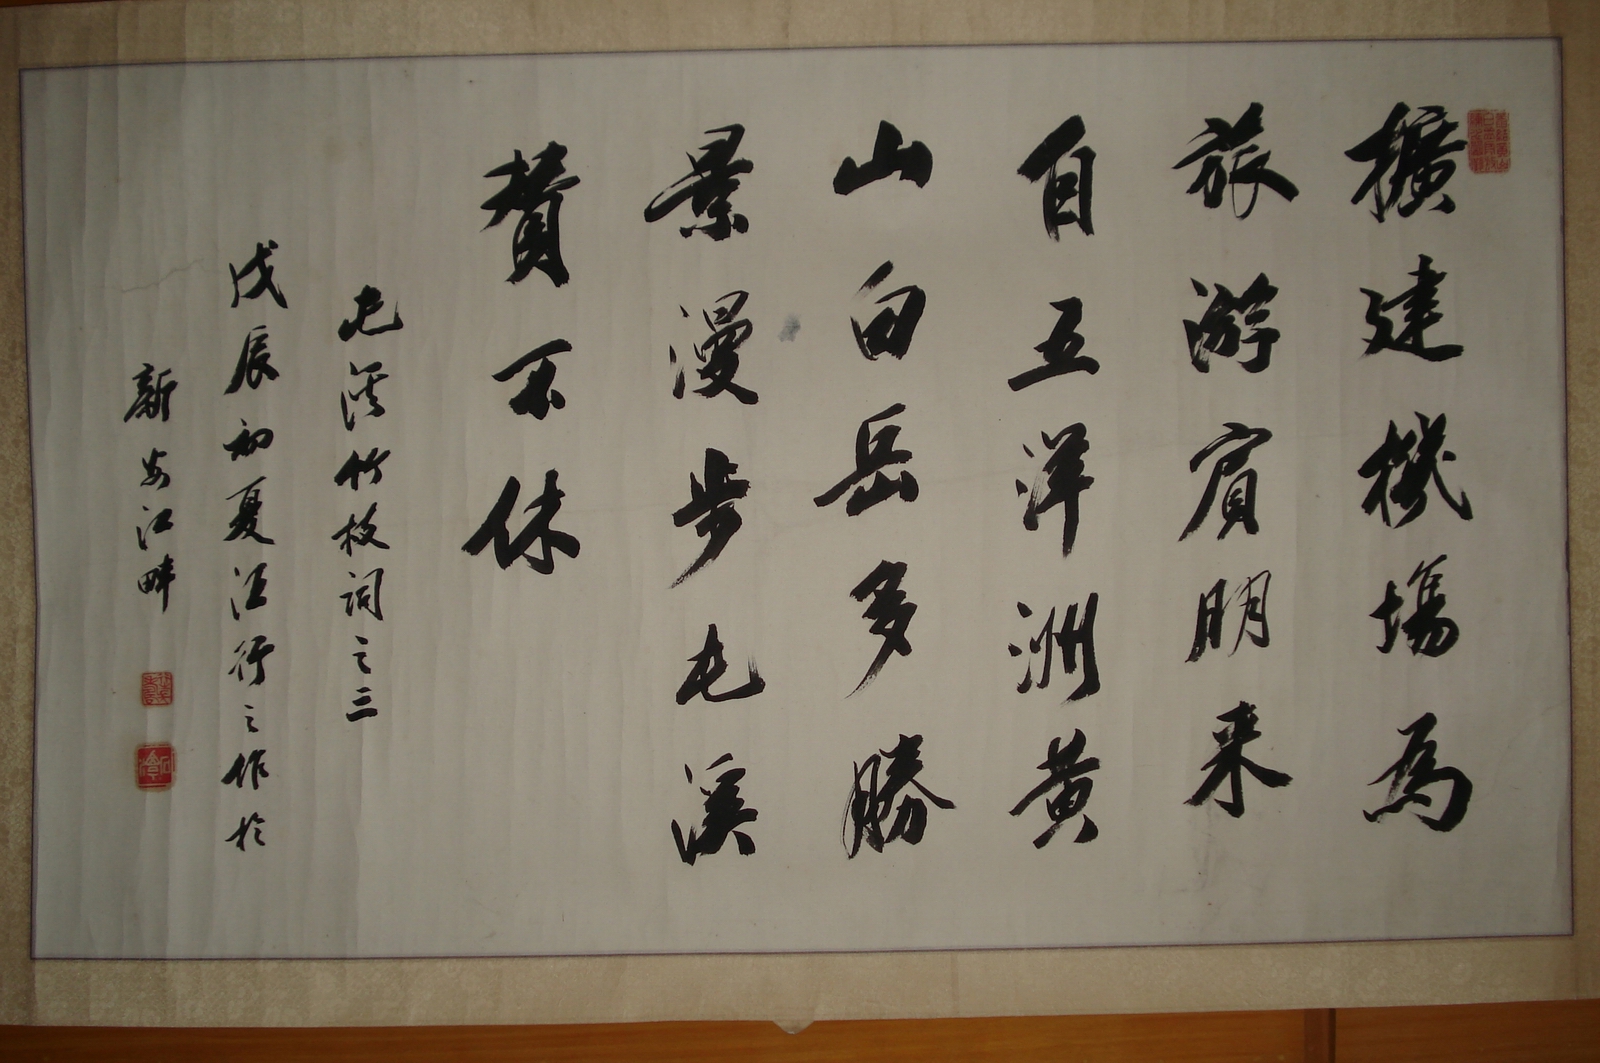 擴建機場為
旅游賓朋来
自五洋洲黄
山白岳多勝
景漫步屯溪
賛不休
屯溪竹枝詞之三
戊辰初夏江行之作於
新安江畔